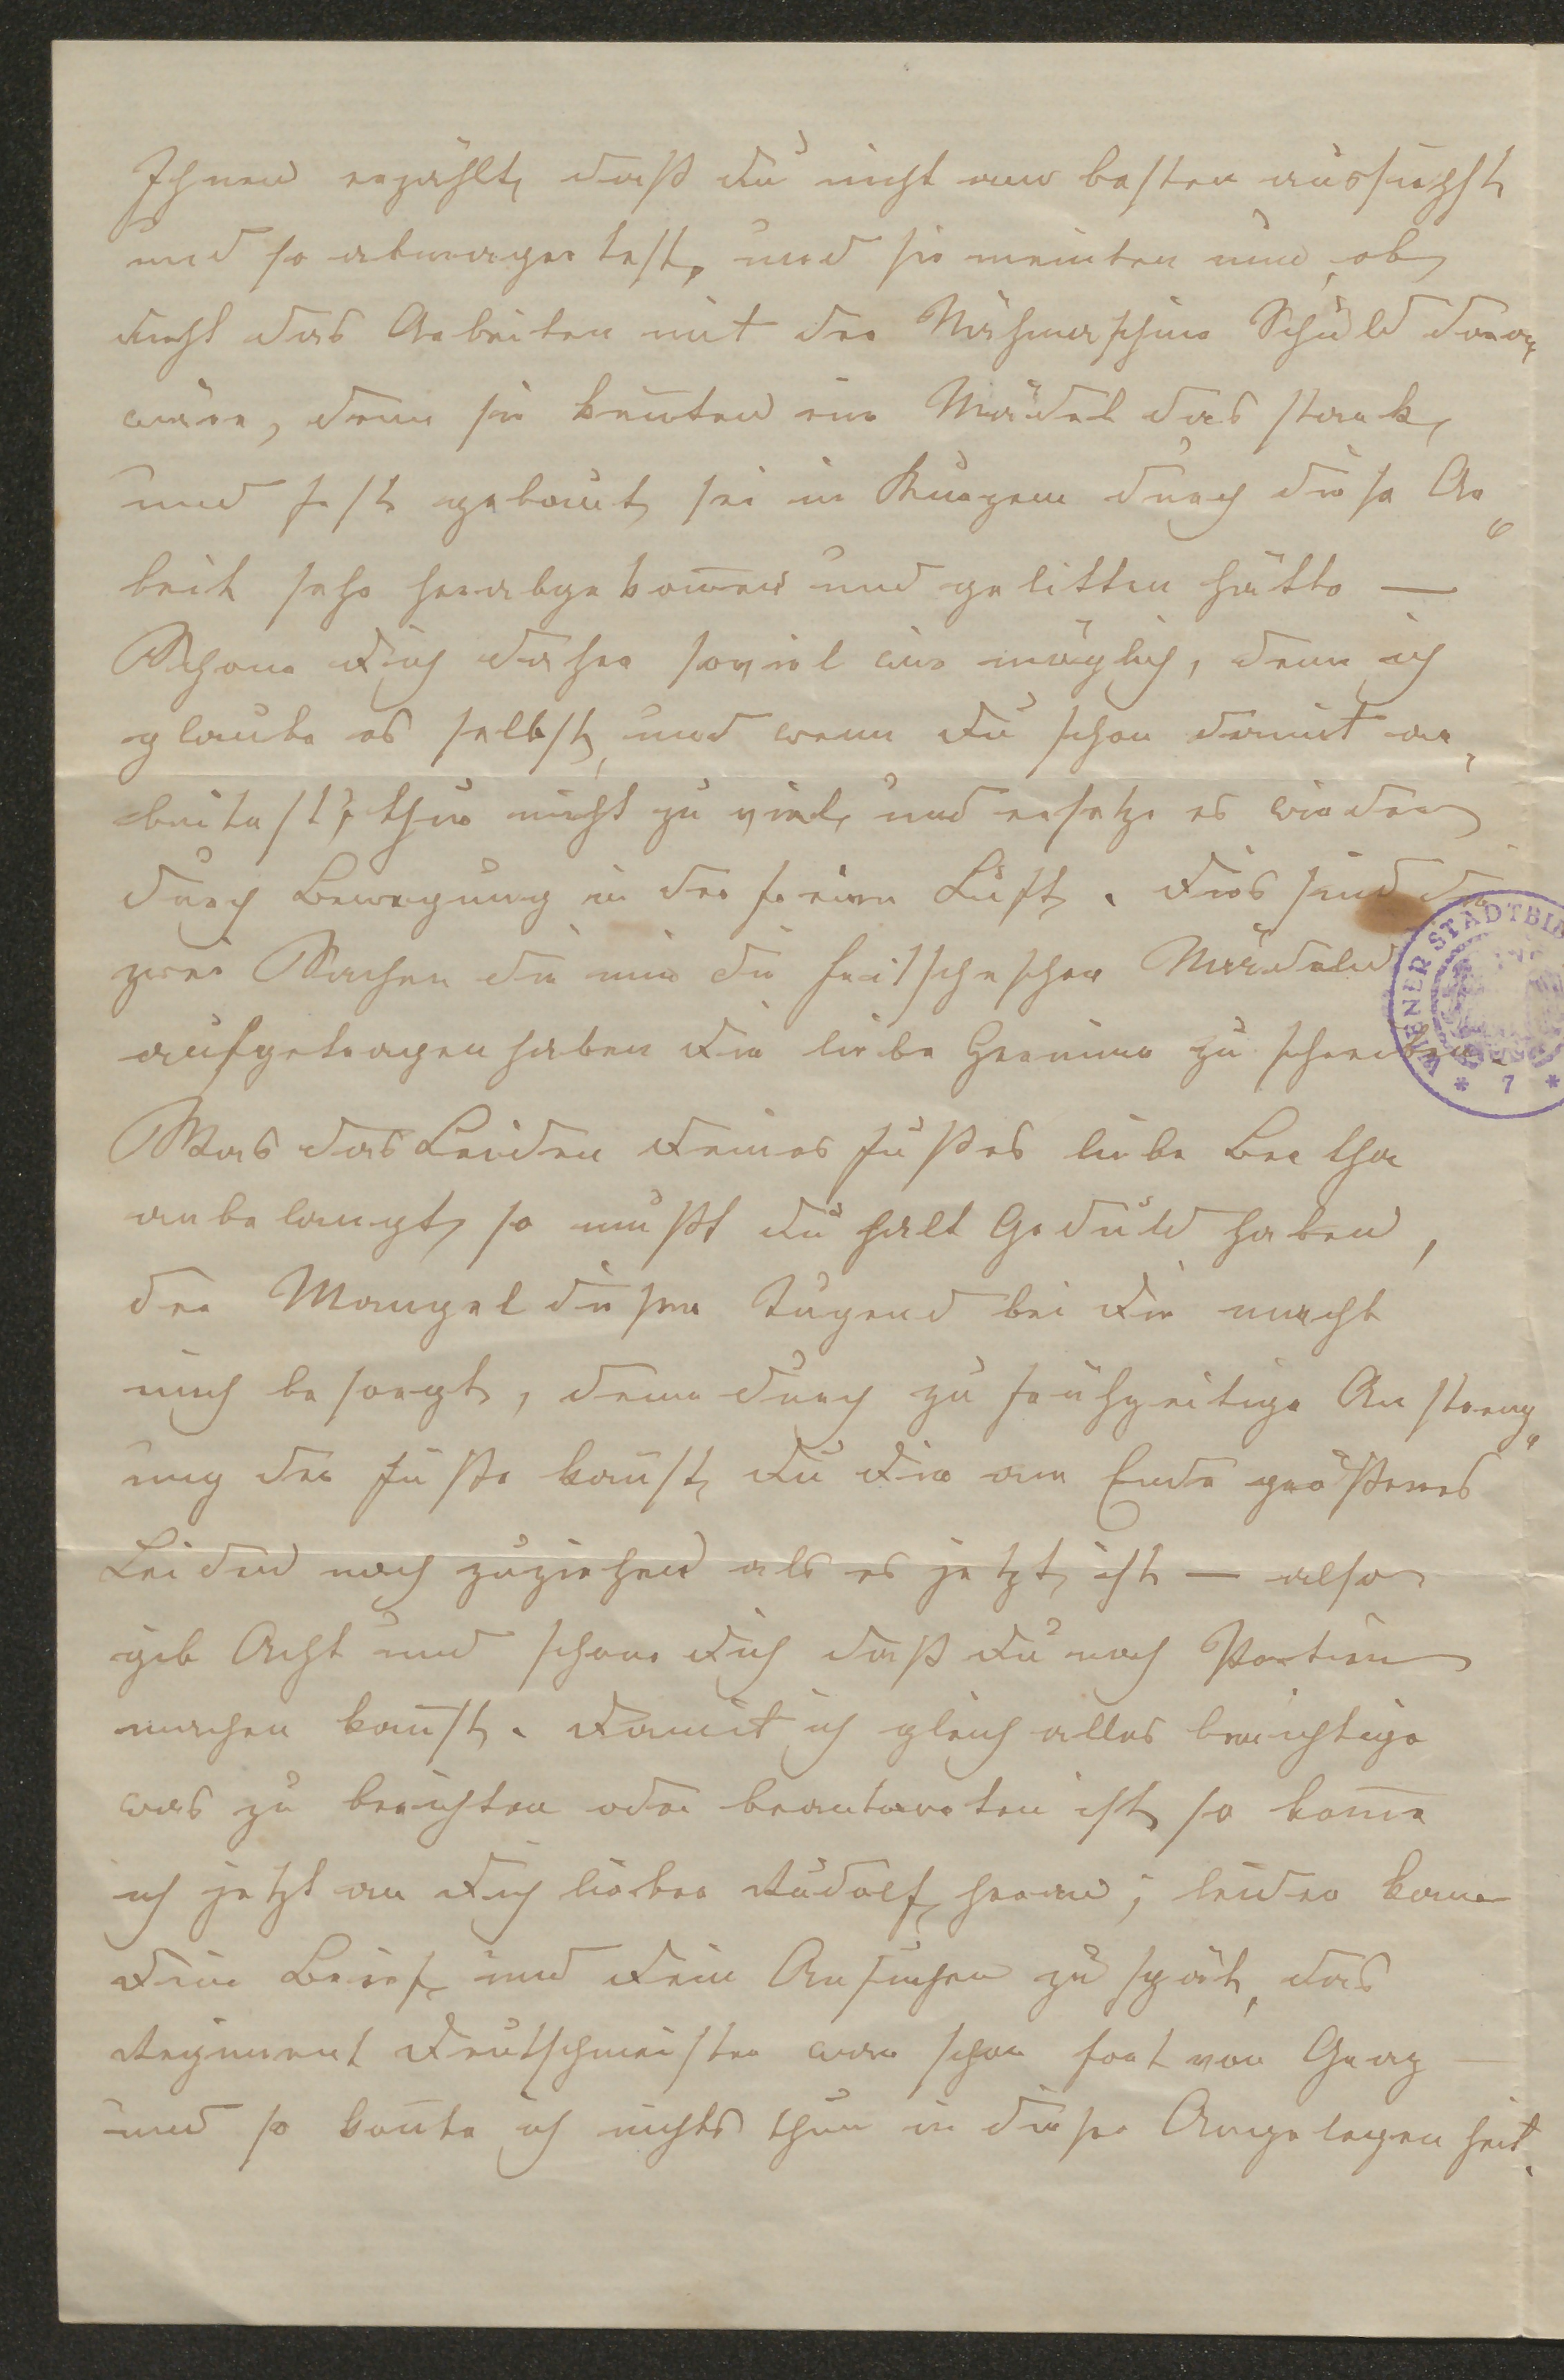 Ihnen erzählt, daß Du nicht am besten aussiehst
und so abmagertest, und sie meinten nun, ob
nicht das Arbeiten mit der Nähmaschine Schuld daran
wäre, denn sie kennten ein Mädel das stark
und fest gebaut sei in Kurzem durch diese Ar„
beit sehr herabgekom̄en und gelitten hätte —
Schone Dich daher soviel wie möglich, denn ich
glaube es selbst, und wenn Du schon damit ar„
beitest, thue nicht zu viel, und ersetze es wieder
durch Bewegung in der freien Luft. Dies sind die
zwei Sachen die mir die Mädeln
aufgetragen haben Dir liebe Hermine zu schreiben.
Was das Leiden Deines Fußes liebe Bertha
anbelangt, so mußt Du halt Geduld haben,
der Mangel dieser Tugend bei Dir macht
mich besorgt, denn durch zu frühzeitige Anstreng„
ung der Füße kan̄st Du Dir am Ende größeres
Leiden noch zuziehen als es jetzt ist — also
gib Acht und schone Dich daß Du noch Partien
machen kan̄st. Damit ich gleich alles berichtige
was zu berichten oder beantworten ist so kom̄e
ich jetzt an Dich lieber Rudolf heran; leider kam
Dein Brief und Dein Ansuchen zu spät, das
Regiment Deutschmeister war schon fort von Graz —
und so kon̄te ich nichts thun in dieser Angelegenheit.
WIENER STADTBIB
* 7 *